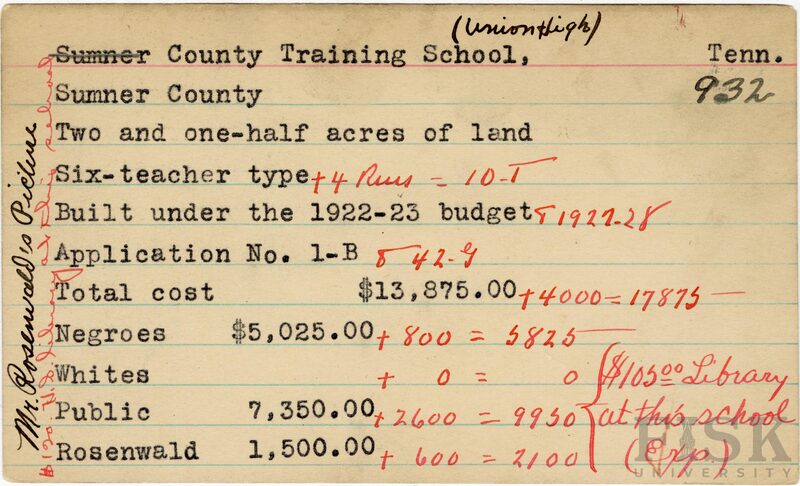 (Union High)
Sumner County Training School, Tenn.
Sumner County 932
Two and one-half acres of land
Six-teacher type + 4 Rms = 10-T
Built under the 1922-23 budget & 1927-28
Application No. 1-B & 42-G
Total cost $13,875.00 + 4000 = 17875 —
Negroes $5,025.00 + 800 = 5825 —
Whites + 0 = 0
Public 7,350.00 + 2600 = 9950
Rosenwald 1,500.00 + 600 = 2100
$105.00 Library
at this school
(Exp)
Mr. Rosenwald's Picture
$120 H.S. Library at this school
FISK
UNIVERSITY